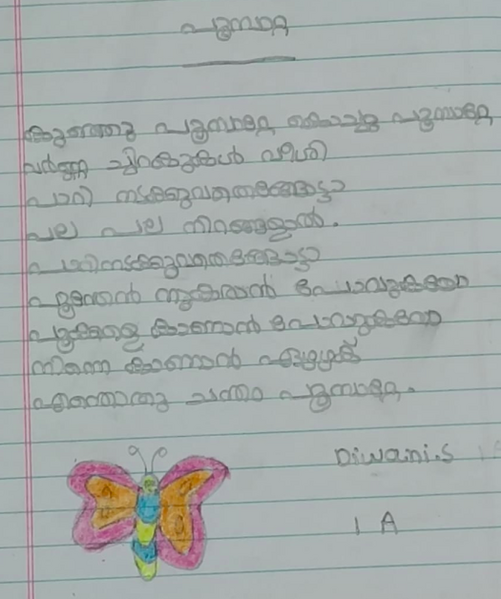 പൂമ്പാറ്റ
കുഞ്ഞു പൂമ്പാറ്റ കൊച്ചു പൂമ്പാറ്റ
വർണ്ണ ചിറകുകൾ വീശി
പാറി നടക്കുവതെങ്ങോട്ടാ
പല പല നിറങ്ങളാൽ.
പാറിനടക്കുവതെങ്ങോട്ടാ
പൂന്തേൻ നുകരാൻ പോവുകയോ
പൂക്കളെ കാണാൻ പോവുകയോ
നിന്നെ കാണാൻ ഏഴഴക്
എന്തൊരു ചന്തം പൂമ്പാറ്റേ.
Diwani.S
1 A